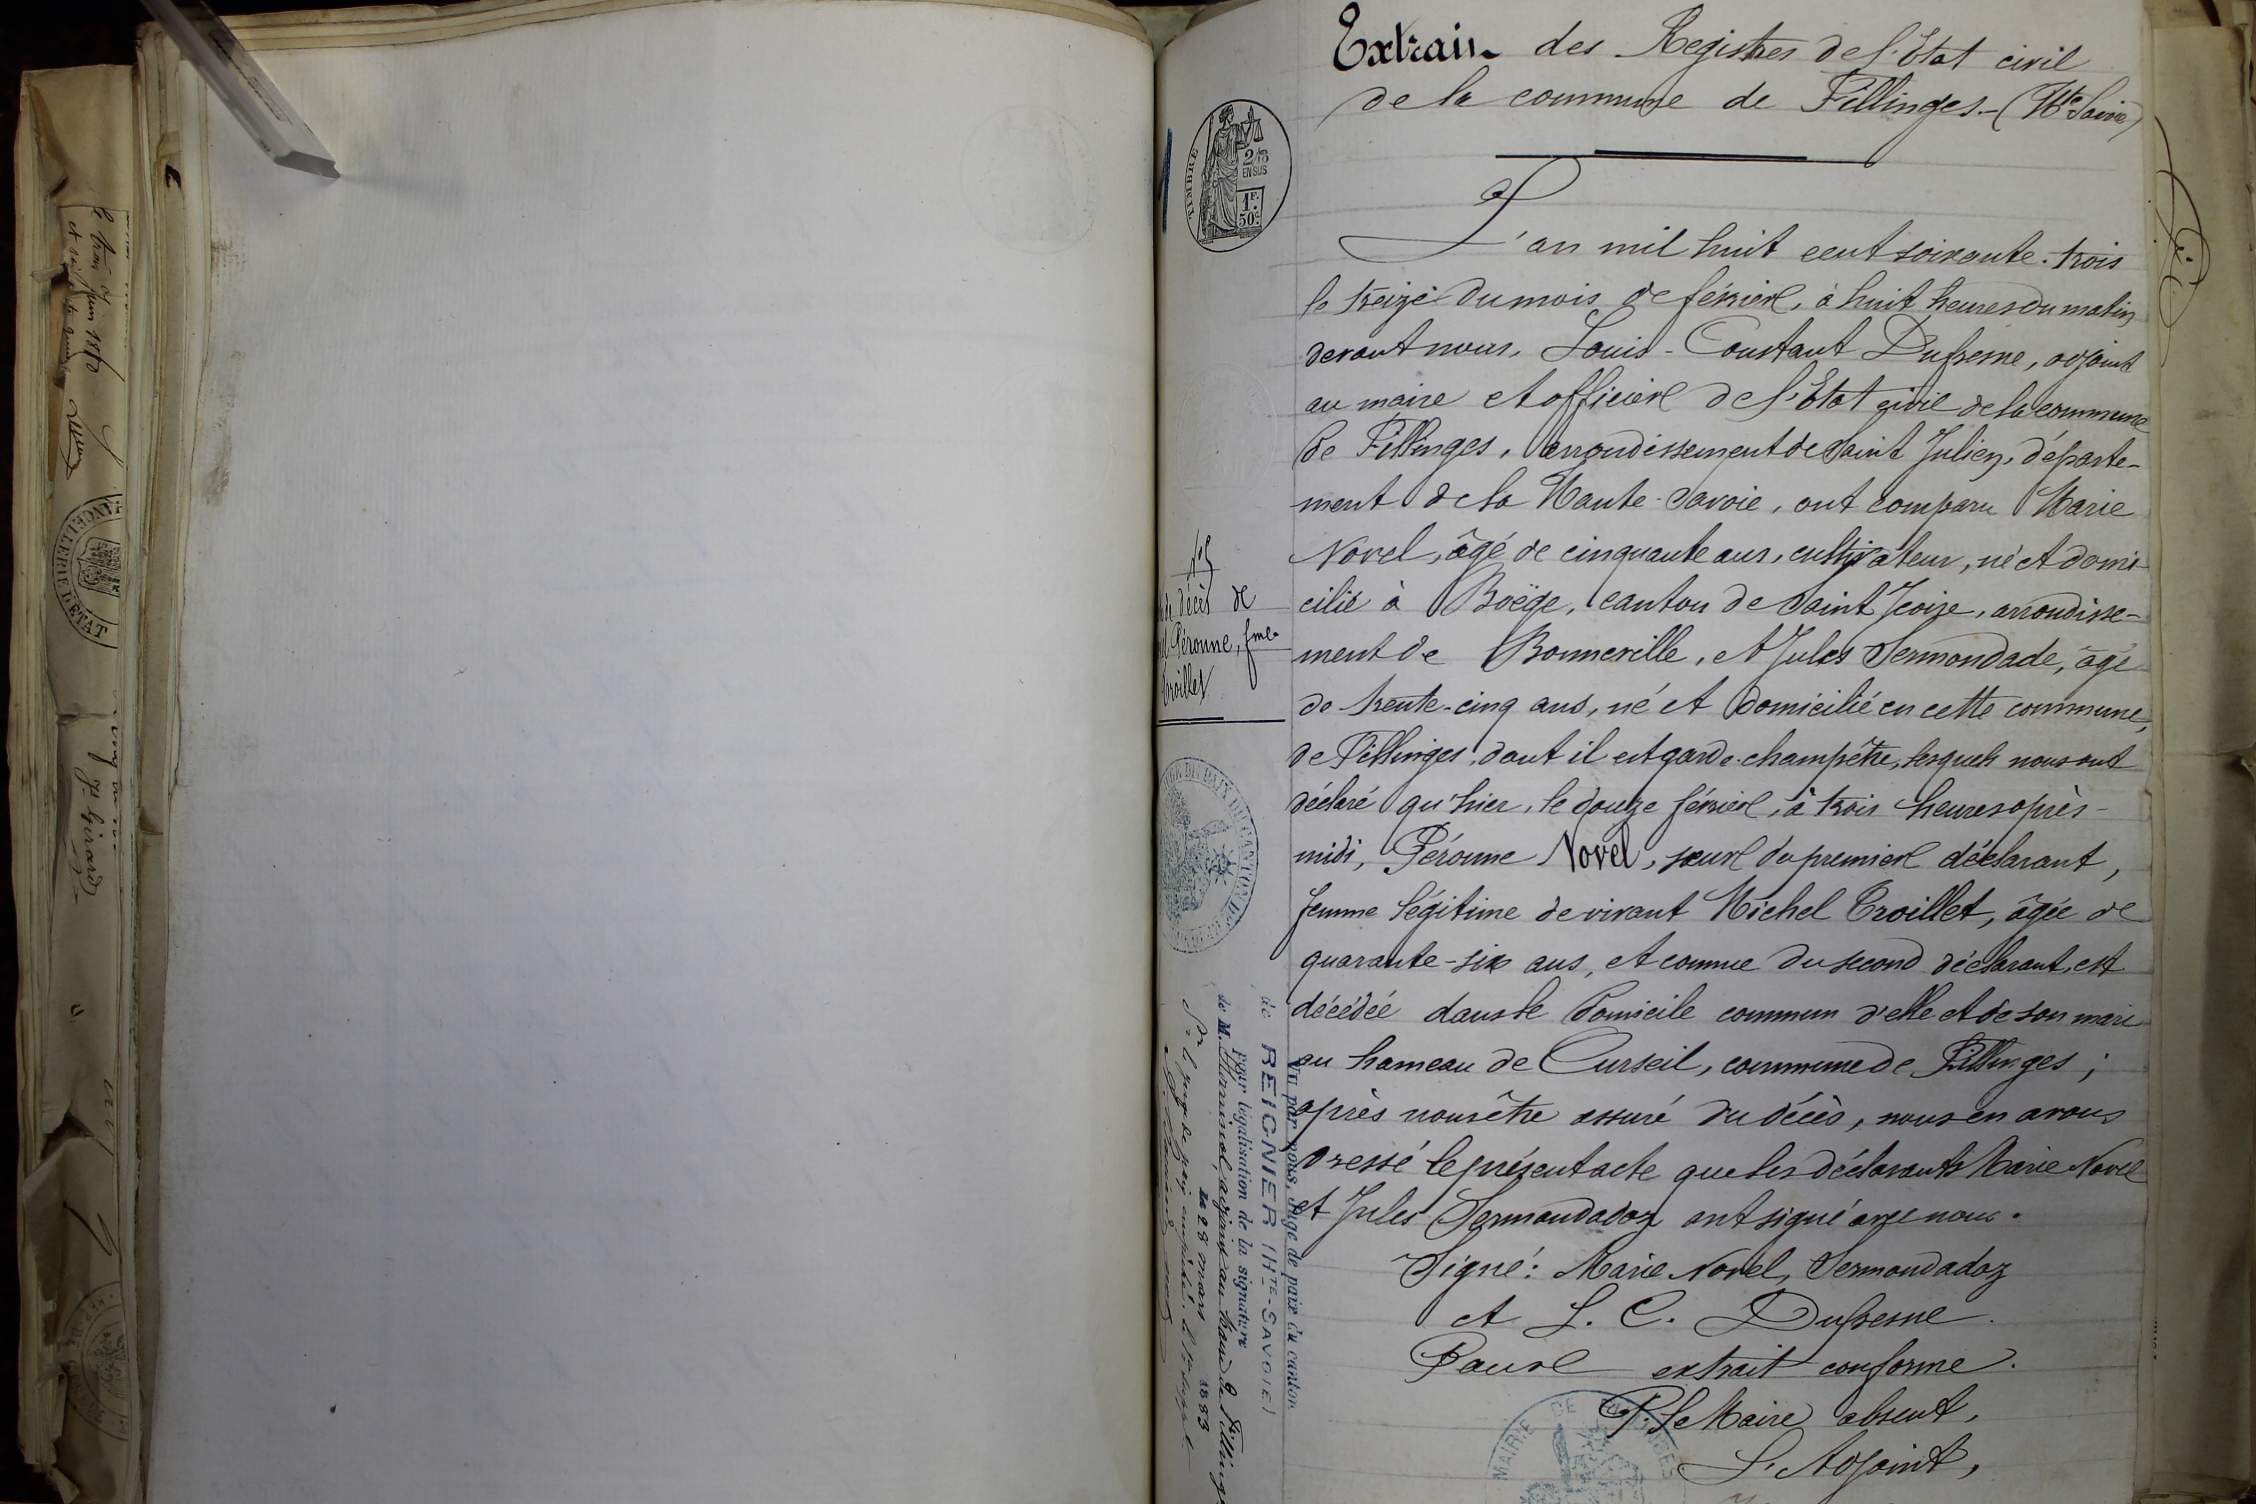 Extrait des Registres de l'Etat civil
de la commune de Fillinges - (Hte Savoie)
TIMBRE
2/10
EN SUS
1F.
50c
L'an mil huit cent soixante-trois
le treize du mois de février, à huit heures du matin
devant nous, Louis-Constant Dufresne, adjoint
au maire et officier de l'Etat civil de la commune
de Fillinges, arrondissement de Saint Julien, départe-
ment de la Haute-Savoie, ont comparu Marie
Novel, âgé de cinquante ans, cultivateur, né et domi-
cilié à Boëge, canton de Saint Jeoire, arrondisse-
ment de Bonneville, et Jules Sermondade, âgé
de trente-cinq ans, né et domicilié en cette commune,
de Fillinges, dont il est garde-champêtre, lesquels nous ont
déclaré qu'hier, le douze février, à trois heures après-
midi, Péronne Novel, sœur du premier déclarant,
femme légitime de vivant Michel Croillet, âgée de
quarante-six ans, et connue du second déclarant, est
décédée dans le domicile commun d'elle et de son mari
au hameau de Curseil, commune de Fillinges ;
après nous être assuré du décès, nous en avons
dressé le présent acte que les déclarants Marie Novel
et Jules Sermondadaz ont signé avec nous.
Signé: Marie Novel, Sermondadaz
et L. C. Dufresne.
Pour extrait conforme.
P. le Maire absent,
L'Adjoint,
MAIRIE DE
N°5
de décès de
Péronne, fme
Croillet
Vu par nous, Juge de paix du canton
de REIGNIER (HTE-SAVOIE)
pour légalisation de la signature
de M. adjoint au maire de Fillinges
Le 28 mars 1883
Juin
CHANCELLERIE D'ETAT
Girard